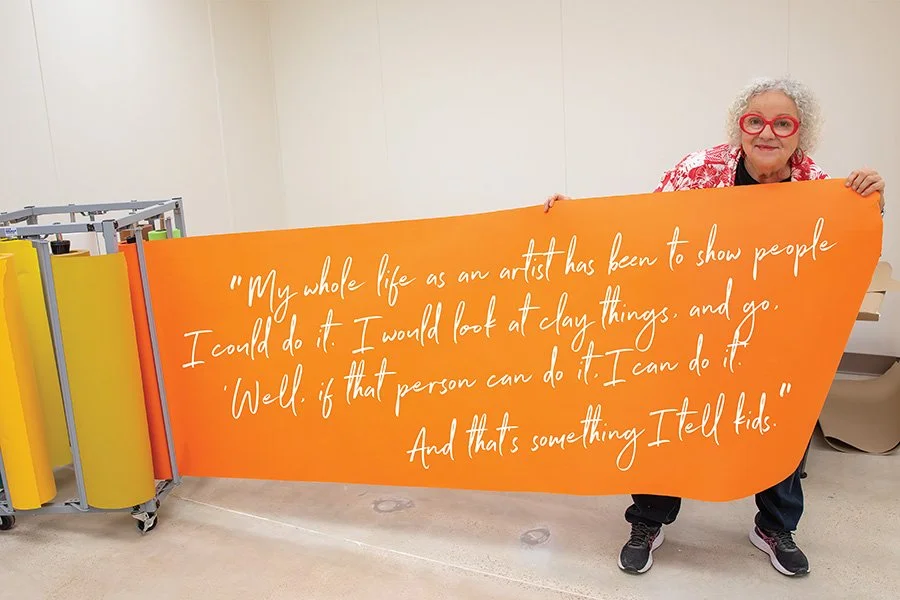 "My whole life as an artist has been to show people
I could do it. I would look at clay things, and go,
'Well, if that person can do it, I can do it.'
And that's something I tell kids."